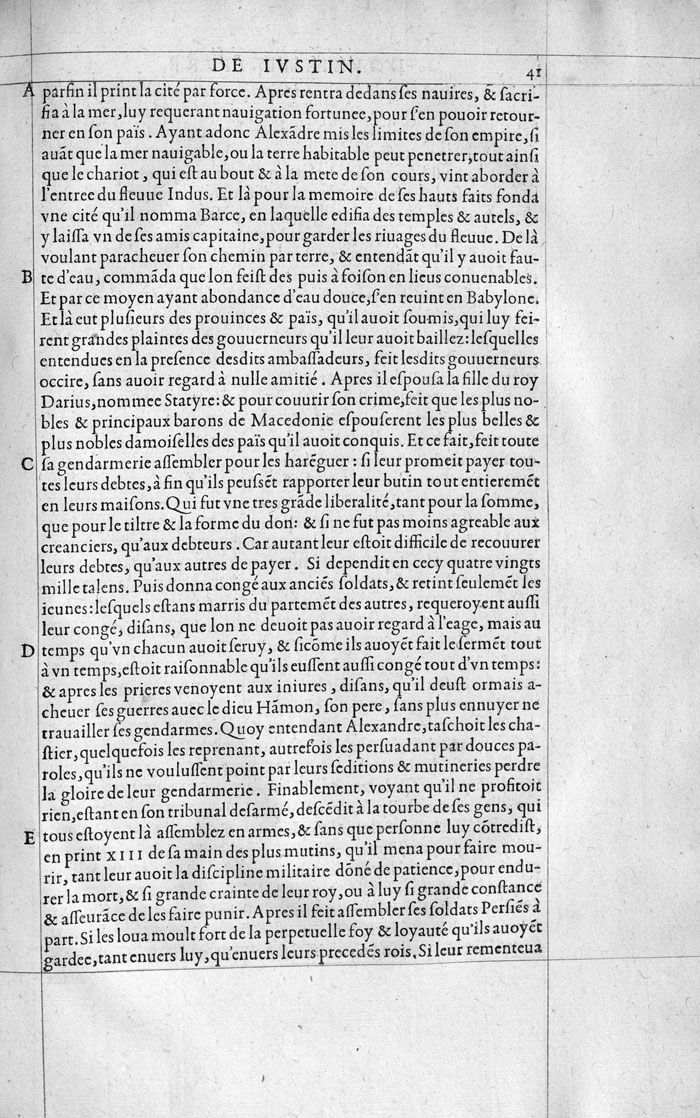 DE IVSTIN. 41
A parfin il print la cité par force. Apres rentra dedans ſes nauires, & ſacri-
fia à la mer, luy requerant nauigation fortunee, pour ſ'en pouoir retour-
ner en ſon païs. Ayant adonc Alexãdre mis les limites de ſon empire, ſi
auãt que la mer nauigable, ou la terre habitable peut penetrer, tout ainſi
que le chariot, qui eſt au bout & à la mete de ſon cours, vint aborder à
l'entree du fleuue Indus. Et là pour la memoire de ſes hauts faits fonda
vne cité qu'il nomma Barce, en laquelle edifia des temples & autels, &
y laiſſa vn de ſes amis capitaine, pour garder les riuages du fleuue. De là
voulant paracheuer ſon chemin par terre, & entendãt qu'il y auoit fau-
B te d'eau, commãda que lon feiſt des puis à foiſon en lieus conuenables.
Et par ce moyen ayant abondance d'eau douce, ſ'en reuint en Babylone.
Et là eut pluſieurs des prouinces & païs, qu'il auoit ſoumis, qui luy fei-
rent grandes plaintes des gouuerneurs qu'il leur auoit baillez: leſquelles
entendues en la preſence deſdits ambaſſadeurs, feit leſdits gouuerneurs
occire, ſans auoir regard à nulle amitié. Apres il eſpouſa la fille du roy
Darius, nommee Statyre: & pour couurir ſon crime, feit que les plus no-
bles & principaux barons de Macedonie eſpouſerent les plus belles &
plus nobles damoiſelles des païs qu'il auoit conquis. Et ce fait, feit toute
C ſa gendarmerie aſſembler pour les harẽguer: ſi leur promeit payer tou-
tes leurs debtes, à fin qu'ils peuſſẽt rapporter leur butin tout entieremẽt
en leurs maiſons. Qui fut vne tres grãde liberalité, tant pour la ſomme,
que pour le tiltre & la forme du don: & ſi ne fut pas moins agreable aux
creanciers, qu'aux debteurs. Car autant leur eſtoit difficile de recouurer
leurs debtes, qu'aux autres de payer. Si dependit en cecy quatre vingts
mille talens. Puis donna congé aux anciẽs ſoldats, & retint ſeulemẽt les
ieunes: leſquels eſtans marris du partemẽt des autres, requeroyent auſſi
leur congé, diſans, que lon ne deuoit pas auoir regard à l'eage, mais au
D temps qu'vn chacun auoit ſeruy, & ſicõme ils auoyẽt fait le ſermẽt tout
à vn temps, eſtoit raiſonnable qu'ils euſſent auſſi congé tout d'vn temps:
& apres les prieres venoyent aux iniures, diſans, qu'il deuſt ormais a-
cheuer ſes guerres auec le dieu Hãmon, ſon pere, ſans plus ennuyer ne
trauailler ſes gendarmes. Quoy entendant Alexandre, taſchoit les cha-
ſtier, quelquefois les reprenant, autrefois les perſuadant par douces pa-
roles, qu'ils ne vouluſſent point par leurs ſeditions & mutineries perdre
la gloire de leur gendarmerie. Finablement, voyant qu'il ne profitoit
rien, eſtant en ſon tribunal deſarmé, deſcẽdit à la tourbe de ſes gens, qui
E tous eſtoyent là aſſemblez en armes, & ſans que perſonne luy cõtrediſt,
en print XIII de ſa main des plus mutins, qu'il mena pour faire mou-
rir, tant leur auoit la diſcipline militaire dõné de patience, pour endu-
rer la mort, & ſi grande crainte de leur roy, ou à luy ſi grande conſtance
& aſſeurãce de les faire punir. Apres il feit aſſembler ſes ſoldats Perſiẽs à
part. Si les loua moult fort de la perpetuelle foy & loyauté qu'ils auoyẽt
gardee, tant enuers luy, qu'enuers leurs precedẽs rois. Si leur rementeua